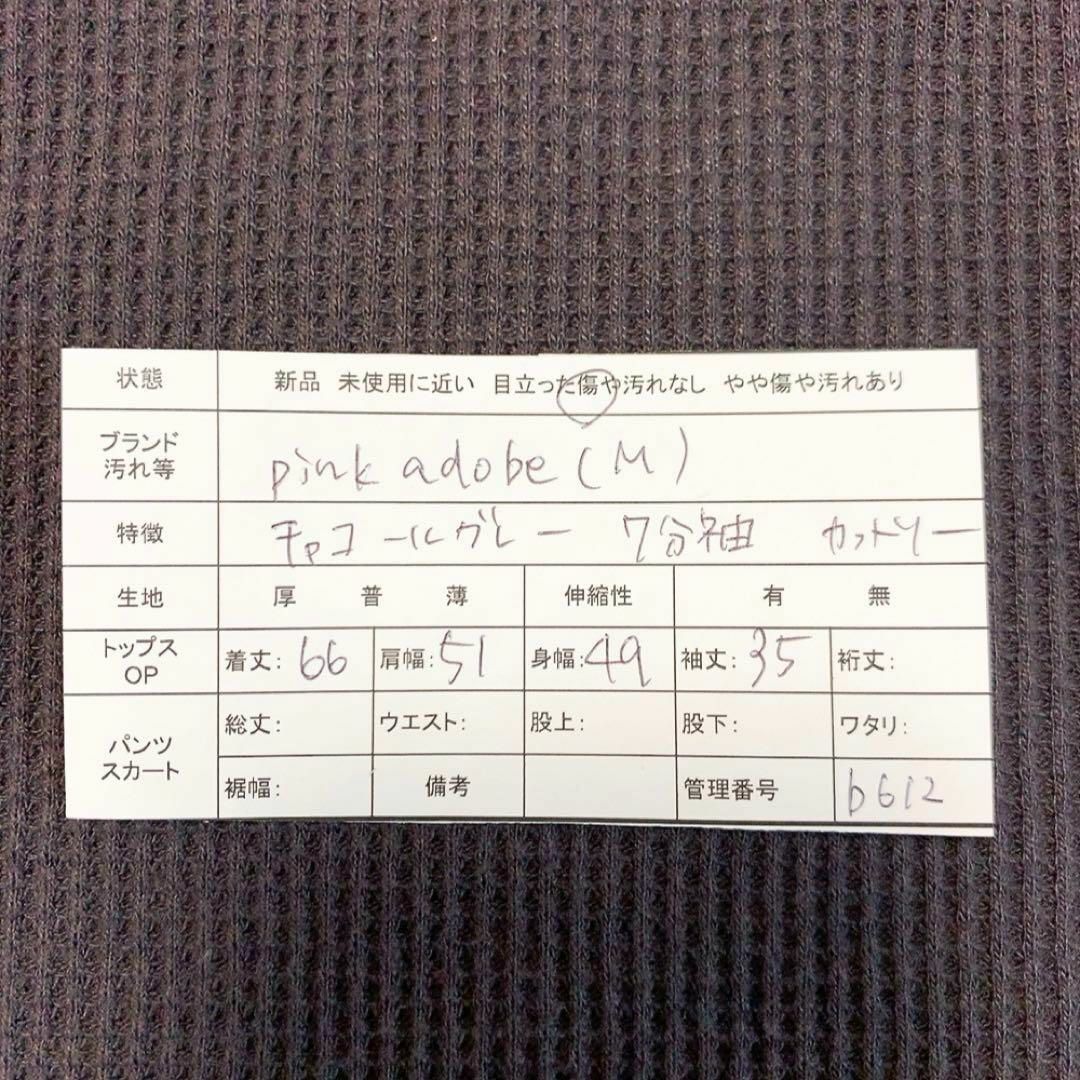 状態 新品 未使用に近い 目立った傷や汚れなし やや傷や汚れあり
ブランド
汚れ等
pink adobe (M)
特徴 チャコールグレー 7分袖 カットソー
生地 厚 普 薄 伸縮性 有 無
トップス
OP
着丈: 66 肩幅: 51 身幅: 49 袖丈: 35 裄丈:
パンツ
スカート
総丈: ウエスト: 股上: 股下: ワタリ:
裾幅: 備考 管理番号 b612